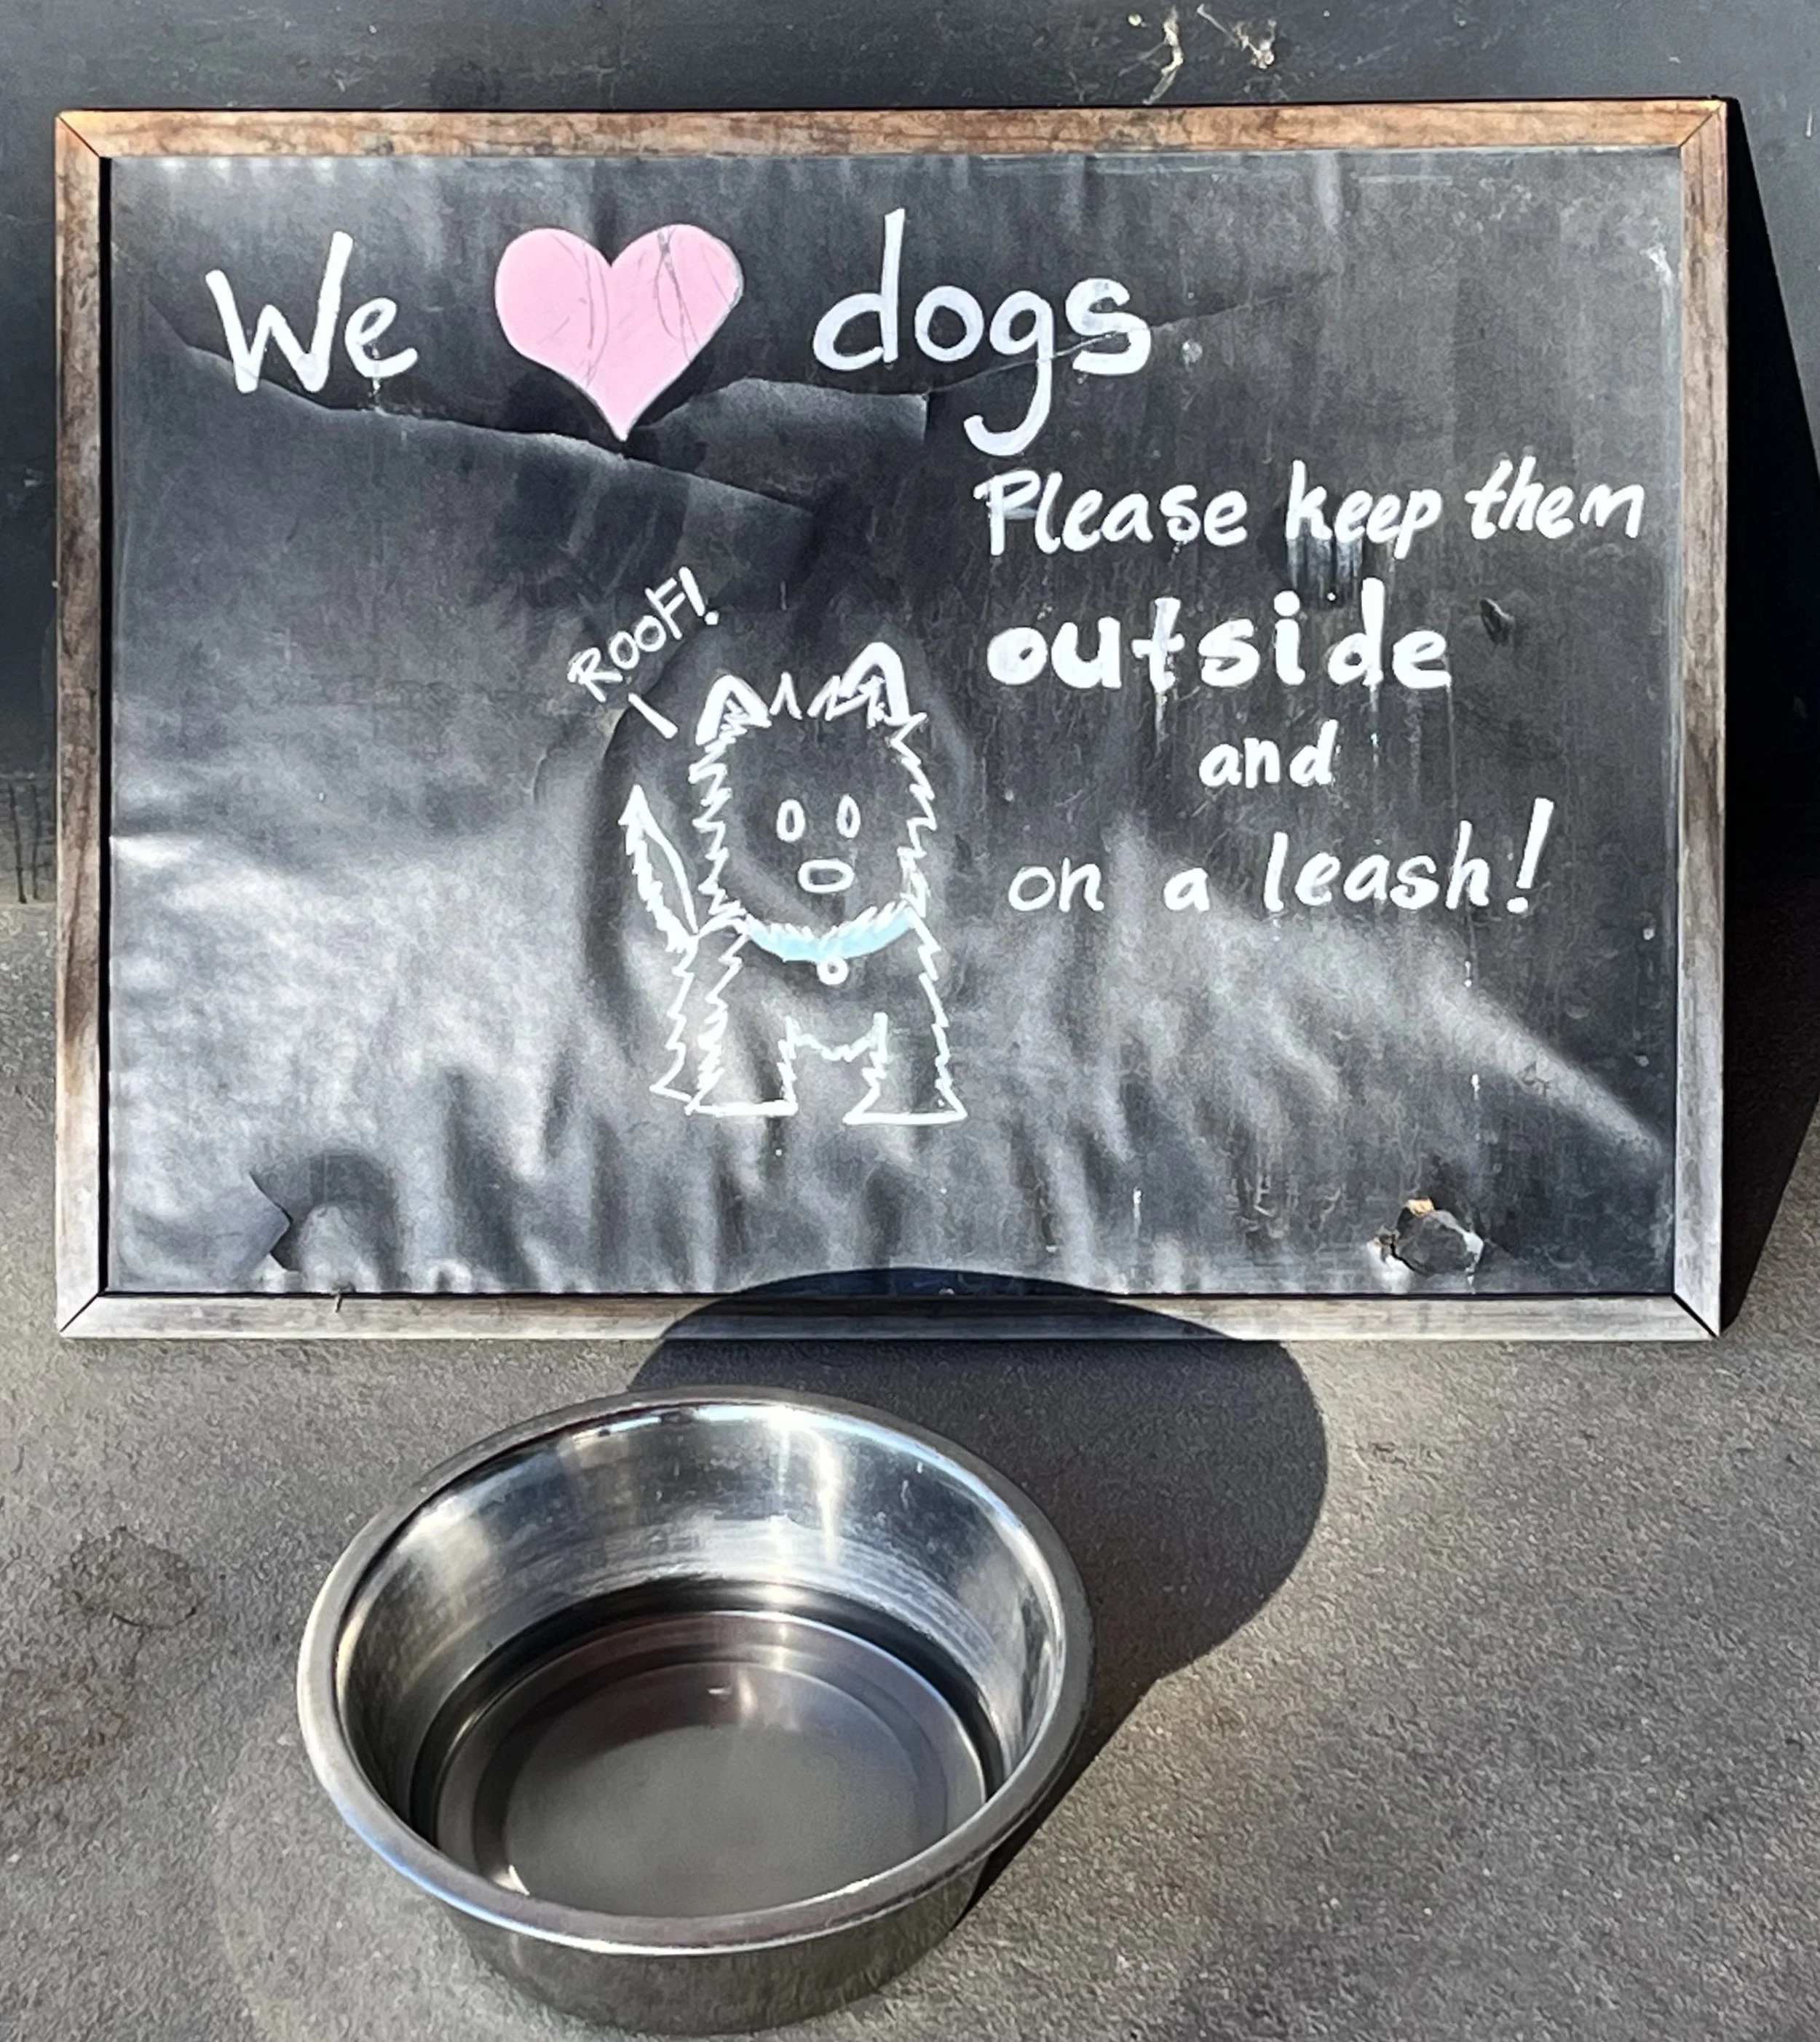 We ♥ dogs
Please keep them
outside
and
on a leash!
ROOF!